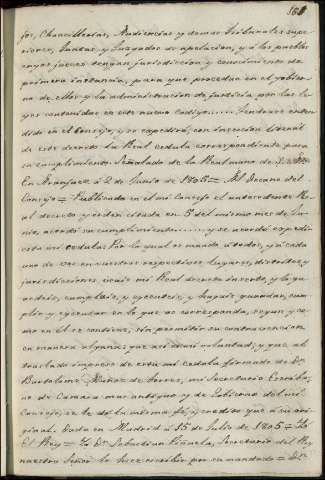 188
jos, Chancillerias, Audiencias y demas Tribunales supe-
riores, Juntas, y Juzgados de apelacion, y á los pueblos
cuyos jueces tengan jurisdiccion y conocimiento de
primera instancia, para que procedan en el gobier-
no de ellos y la administracion de justicia por las le-
yes contenidas en este nuevo Codigo..... Tendrase enten-
dido en el Consejo, y se expedirá, con insercion literal
de este decreto la Real cedula correspondiente para
su cumplimiento. Señalado de la Real mano de S. M.
En Aranjuez á 2 de Junio de 1805 = Al Decano del
Consejo = Publicado en el mi Consejo el antecedente Re-
al decreto y orden citada en 5 del mismo mes de Ju-
nio, acordó su cumplimiento..... y se acordó expedir
esta mi cedula: Por la qual os mando á todos, y á cada
uno de vos en vuestros respectivos lugares, distritos y
jurisdicciones veais mi Real decreto inserto, y lo gu-
ardeis, cumplais, y executeis, y hagais guardar, cum-
plir y executar en lo que os corresponda, segun y co-
mo en el se contiene, sin permitir su contravencion
en manera alguna; que asi es mi voluntad; y que al
traslado impreso de esta mi cedula firmado de Dn.
Bartolome Muñoz de Torres, mi Secretario Escriba-
no de Camara mas antiguo y de Gobierno del mi
Consejo, se le dé la misma fé y credito que á su ori-
ginal. Dada en Madrid á 15 de Julio de 1805 = Yo
El Rey = Yo Dn. Sebastian Piñuela, Secretario del Rey
nuestro Señor lo hice escribir por su mandado = Dn.